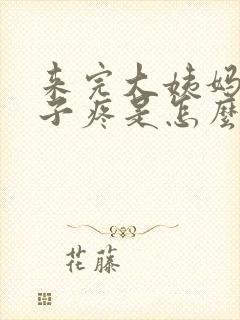 来完大姨妈
子疼是怎麼
花藤